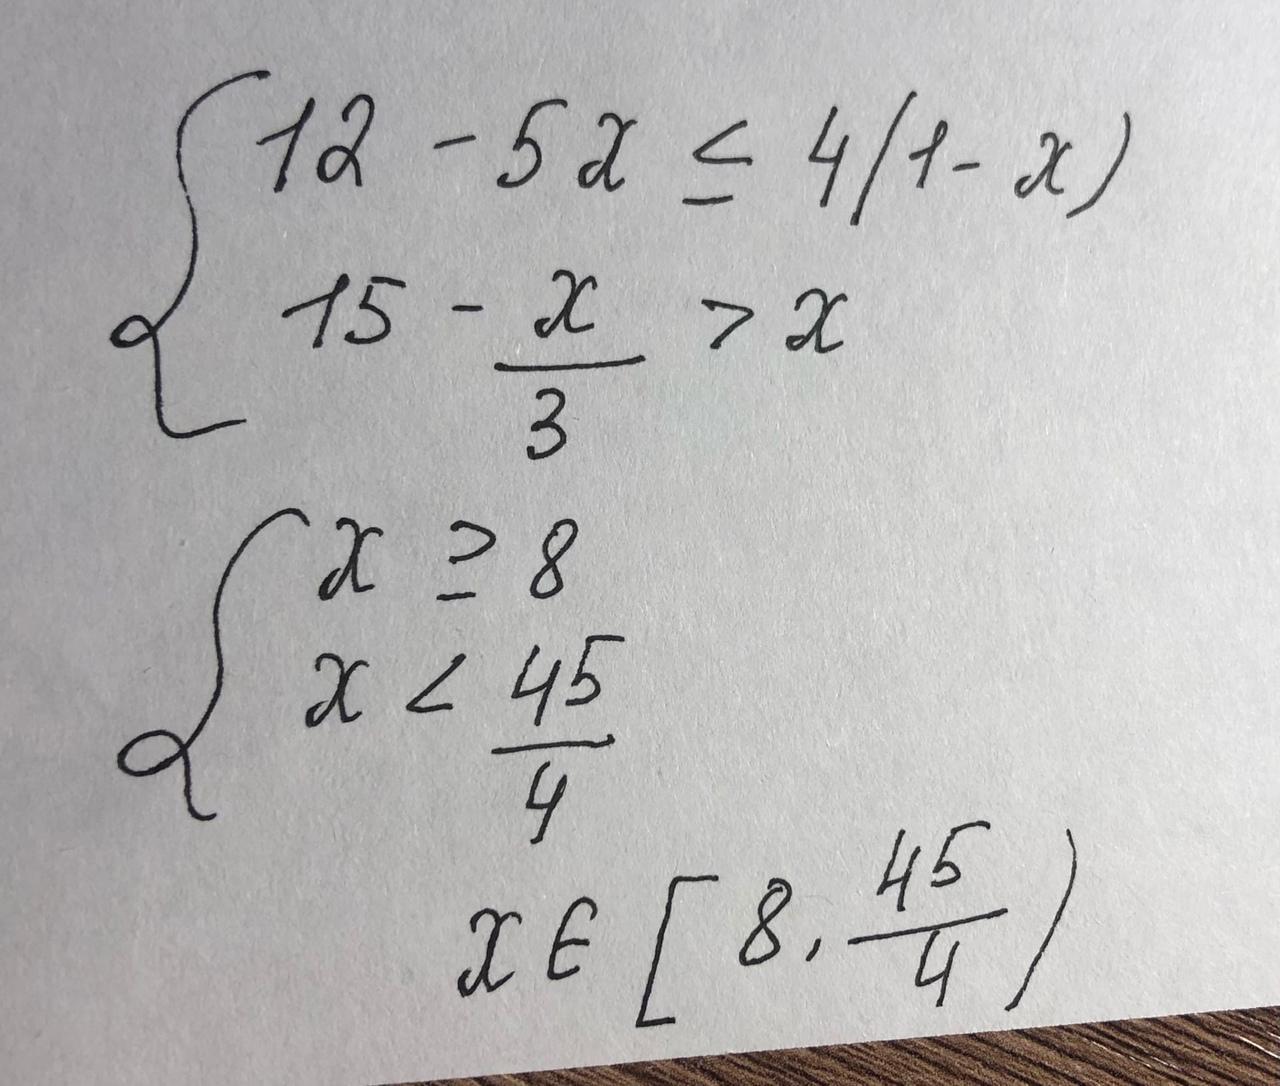 12 - 5x ≤ 4(1 - x)
15 - x/3 > x
x ≥ 8
x < 45/4
x ∈ [8, 45/4)